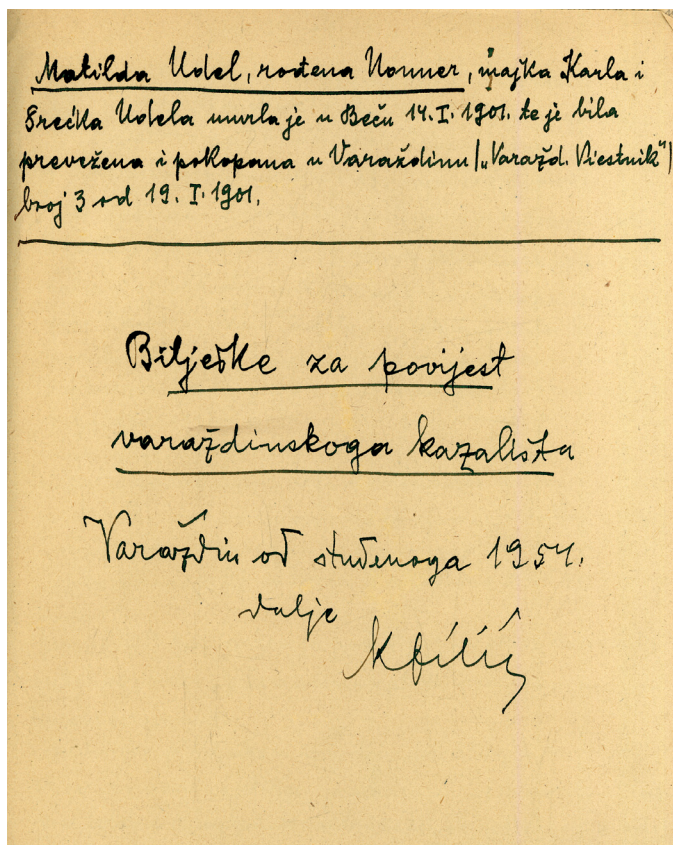 Matilda Udel, rođena Nonner, majka Karla i
Srećka Udela umrla je u Beču 14. I. 1901. te je bila
prevežena i pokopana u Varaždinu („Varažd. Viestnik“)
broj 3 od 19. I. 1901.
Bilješke za povijest
varaždinskoga kazališta
Varaždin od studenoga 1954.
dalje
K Filić